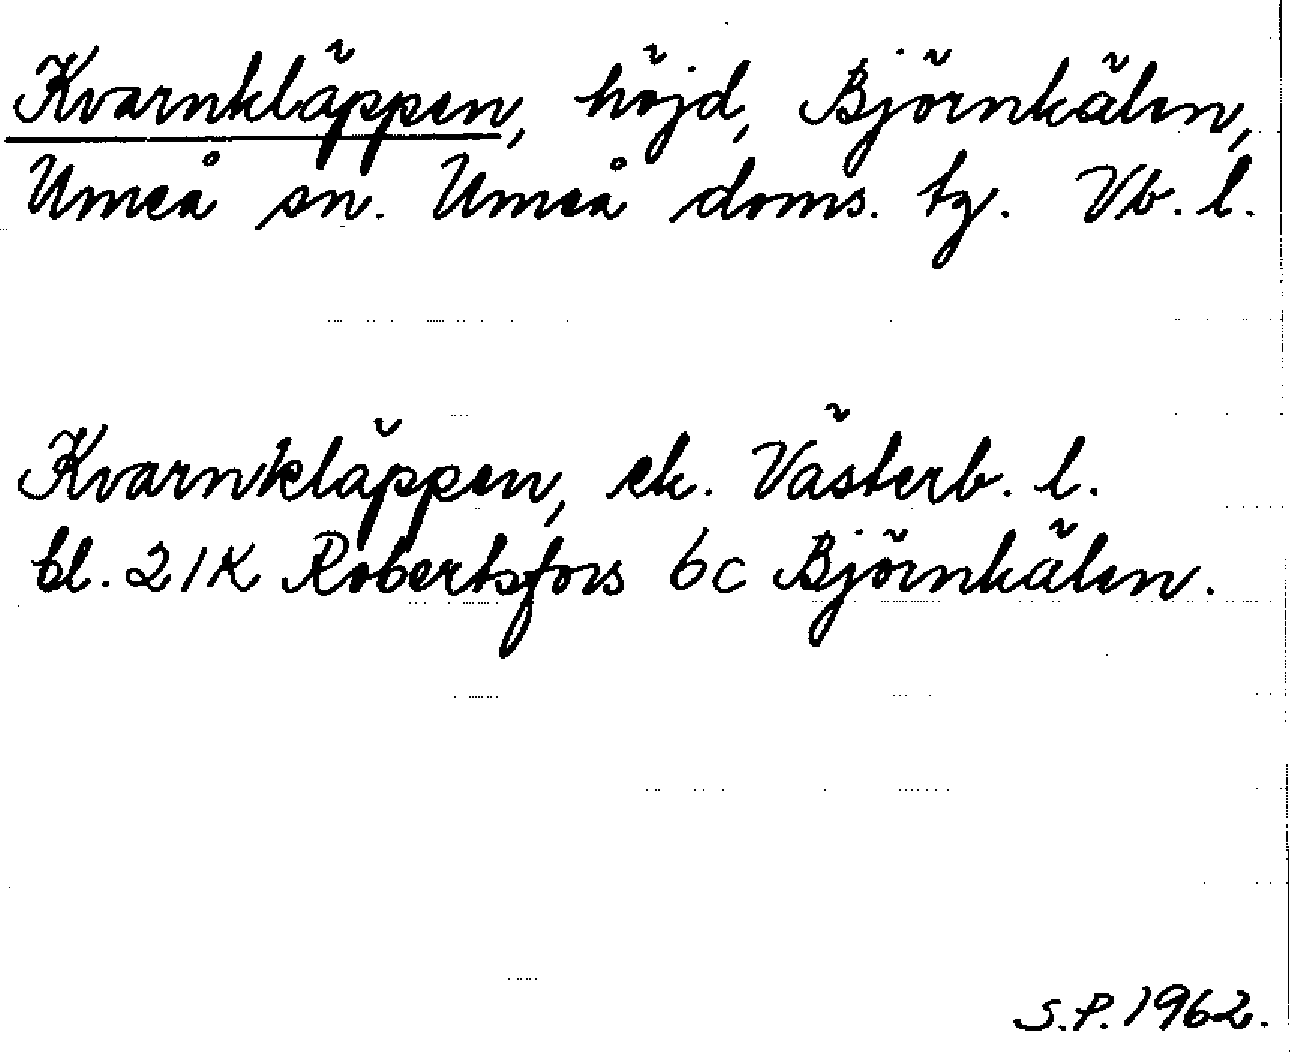 Kvarnkläppen, höjd, Björnkälen,
Umeå sn. Umeå doms. tg. Vb. l.
Kvarnkläppen, ek. Västerb. l.
bl. 21K Robertsfors 6c Björnkälen.
S.P. 1962.